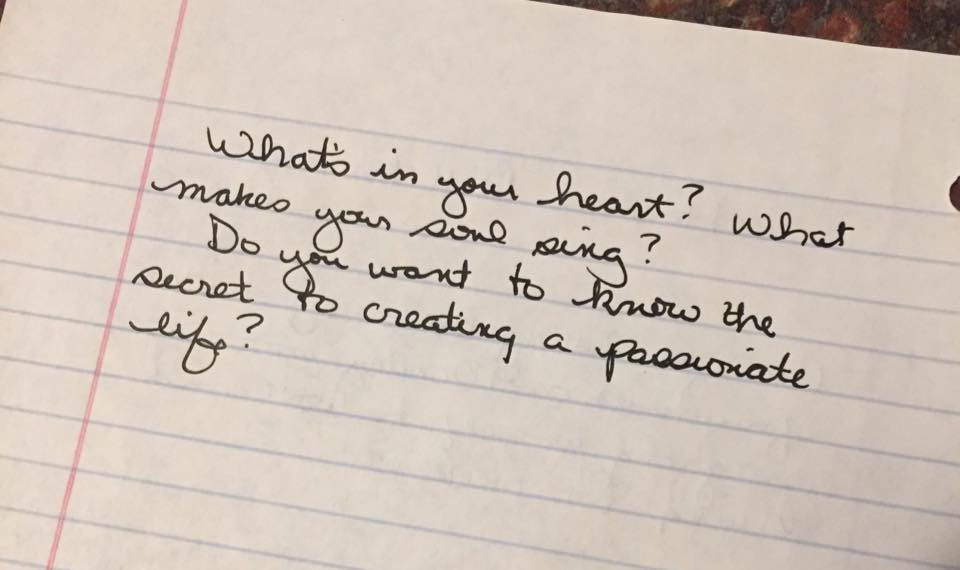 What's in your heart? What
makes your soul sing?
Do you want to know the
secret to creating a passionate
life?